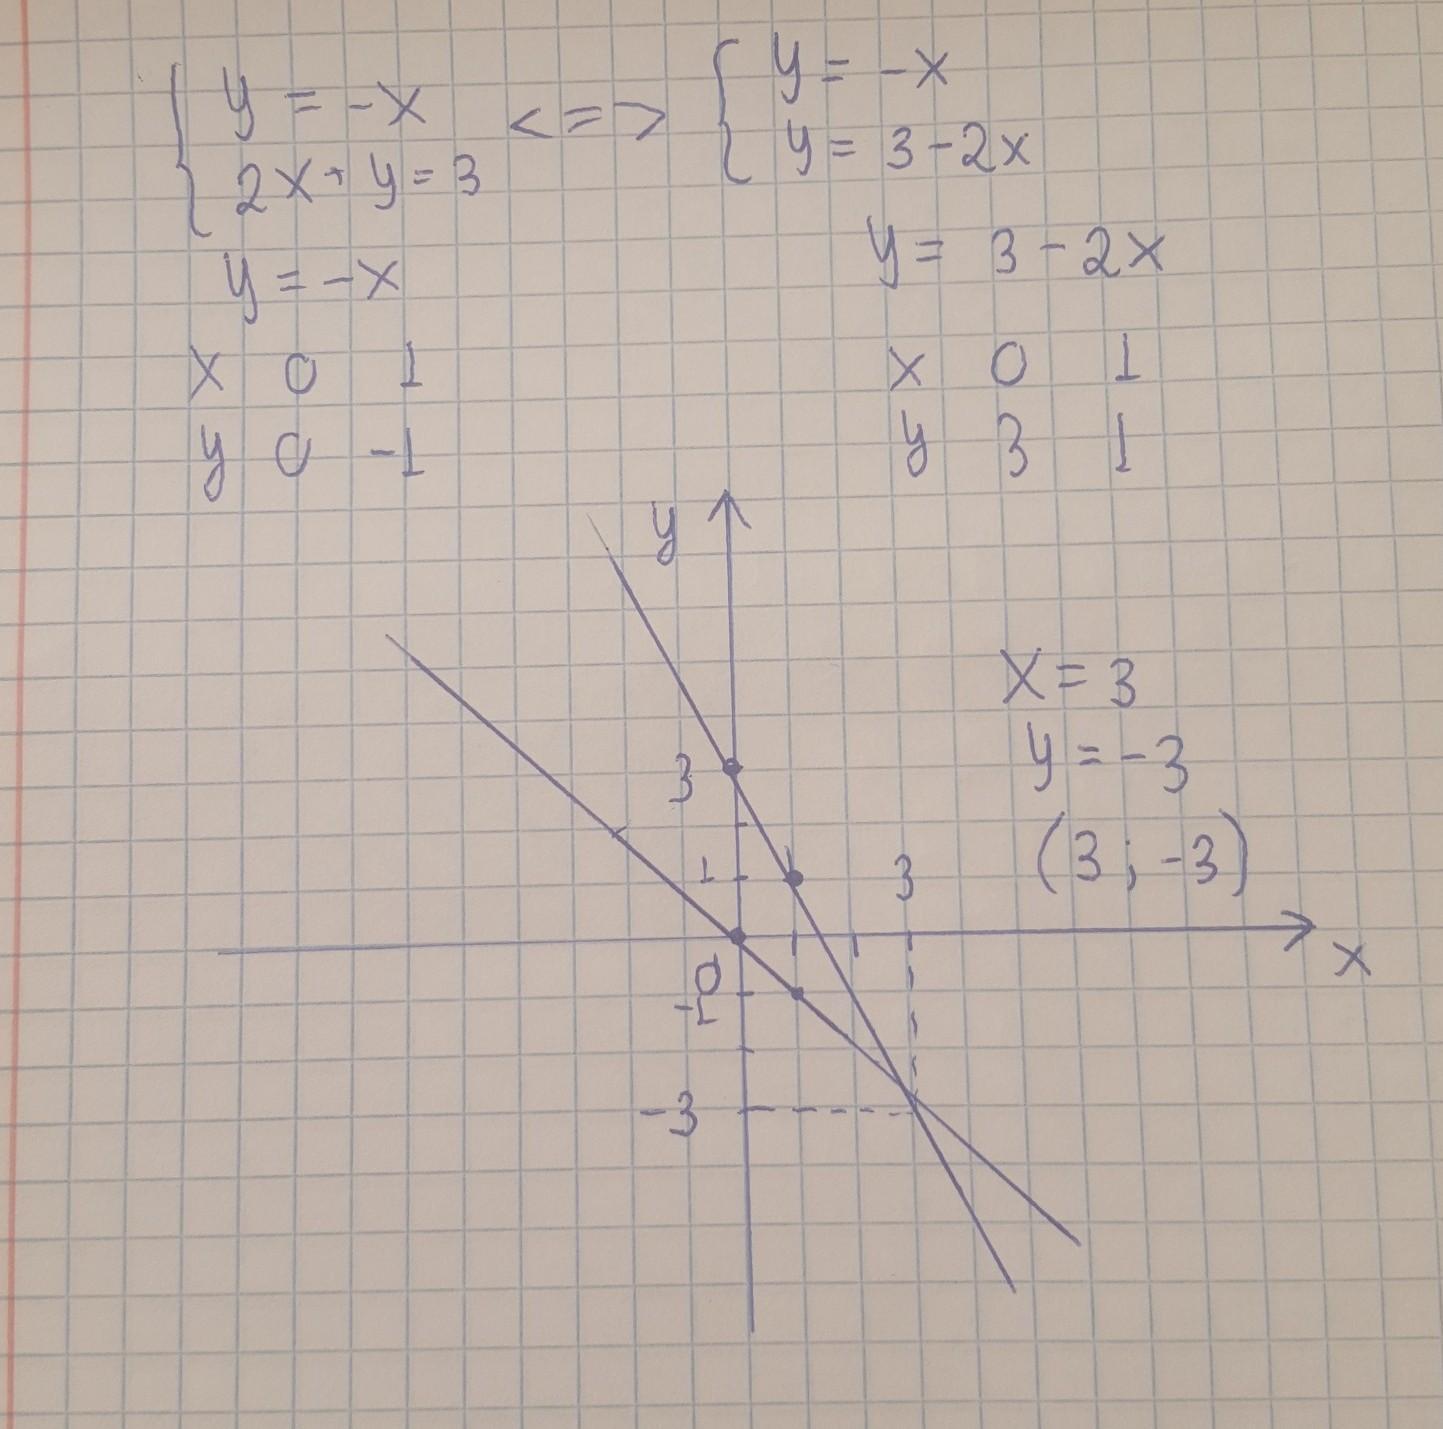 { y = -x <=> { y = -x
2x + y = 3 y = 3 - 2x
y = -x
x 0 1
y 0 -1
y = 3 - 2x
x 0 1
y 3 1
y
3
1
3
0
-1
-3
x
x = 3
y = -3
(3 ; -3)